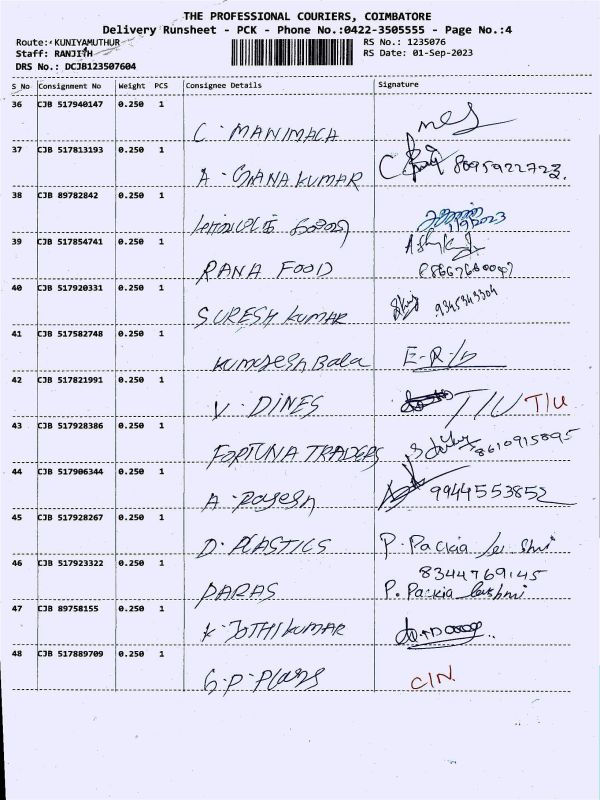 THE PROFESSIONAL COURIERS, COIMBATORE
Delivery Runsheet - PCK - Phone No.:0422-3505555 - Page No.:4
Route: KUNIYAMUTHUR RS No.: 1235076
Staff: RANJITH RS Date: 01-Sep-2023
DRS No.: DCJB123507604
S No Consignment No Weight PCS Consignee Details Signature
36 CJB 517940147 0.250 1
C. MANIMALA
37 CJB 517813193 0.250 1
A. GNANA KUMAR 8695922723.
38 CJB 89782842 0.250 1
39 CJB 517854741 0.250 1
RANA FOOD
40 CJB 517920331 0.250 1
SURESH KUMAR 9345343304
41 CJB 517582748 0.250 1
Kumaresh Bala E-R/D
42 CJB 517821991 0.250 1
V. DINES T/U T/U
43 CJB 517928386 0.250 1
FORTUNA TRADERS 8610915895
44 CJB 517906344 0.250 1
A. Rajesh 9944553852
45 CJB 517928267 0.250 1
D. PLASTICS P. Packia
46 CJB 517923322 0.250 1 8344769145
PARAS P. Packia lakshmi
47 CJB 89758155 0.250 1
K. JOTHI KUMAR
48 CJB 517889709 0.250 1
G.P. C/N.